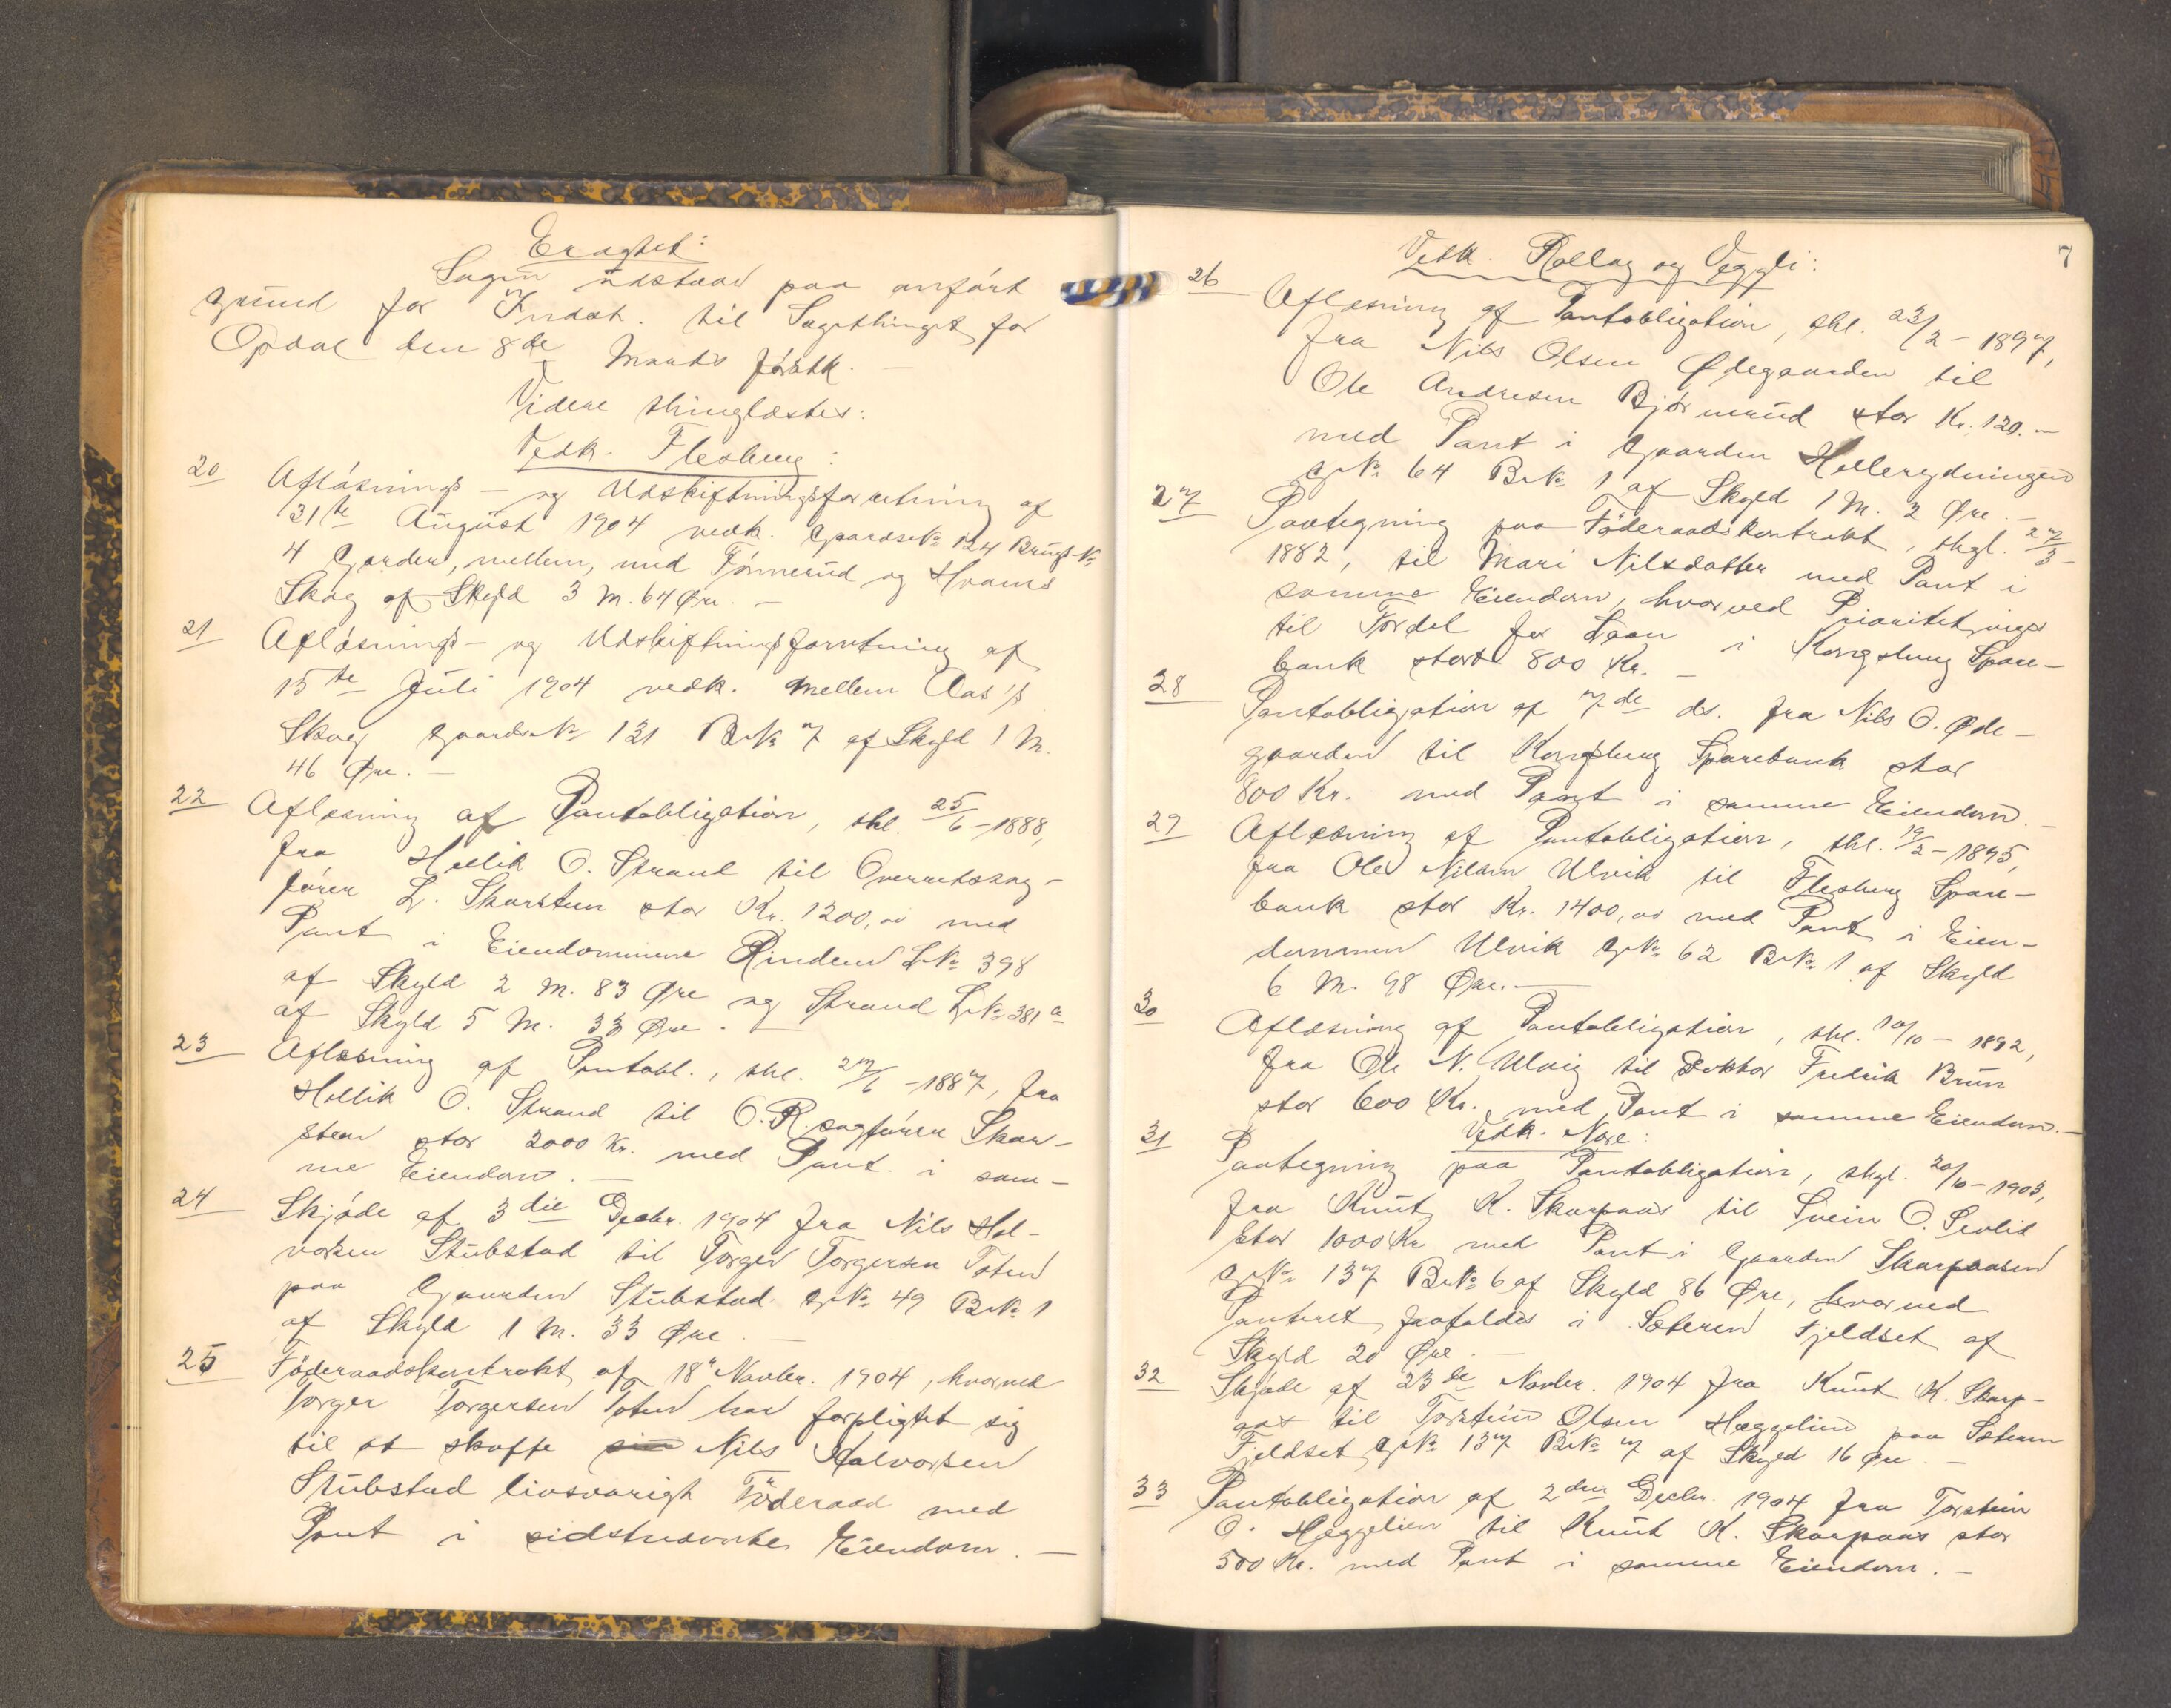 Eragtet:
Sagen udstaar paa anført
Grund for Indst. til Sagethinget for
Opdal den 8de Marts førstk. —
Videre thinglæstes:
Vedk. Flesberg:
20 Afløsnings- og Udskiftningsforretning af
31te August 1904 vedk. Gaardsno 124 Brugs-No
4 Garden, mellem, med Fønnerud og Hvams
Skog af Skyld 3 M. 64 Øre. —
21 Afløsnings- og Udskiftningsforretning af
15te Juli 1904 vedk. mellem Aas's
Skog Gaards-No 121 B.No 7 af Skyld 1 M.
46 Øre. —
22 Aflæsning af Pantobligation, thl. 25/6 - 1888,
fra Hellik O. Strand til Overretssag-
fører L. Skarsteen stor Kr. 1200,00 med
Pant i Eiendommene Rinden L.No 398
af Skyld 2 M. 83 Øre og Strand L.No 381 a
af Skyld 5 M. 33 Øre. —
23 Aflæsning af Pantobl., thl. 27/6 - 1887, fra
Hellik O. Strand til O.R.sagfører Skar-
steen stor 2000 Kr. med Pant i sam-
me Eiendom. —
24 Skjøde af 3die Decbr. 1904 fra Nils Hal-
vorsen Stubstad til Torger Torgersen Toten
paa Gaarden Stubstad G.No 49 B.No 1
af Skyld 1 M. 33 Øre. —
25 Föderaadskontrakt af 18de Novbr. 1904, hvorved
Torger Torgersen Toten har forpligtet sig
til at skaffe sin Nils Halvorsen
Stubstad livsvarigt Föderaad med
Pant i sidstnævnte Eiendom. —
7
Vedk. Rollag og Veggli:
26 Aflæsning af Pantobligation, thl. 23/2 - 1897,
fra Nils Olsen Ødegaarden til
Ole Andresen Bjørnerud stor Kr. 120. —
med Pant i Gaarden Hellerydningen
G.No 64 B.No 1 af Skyld 1 M. 2 Øre. —
27 Paategning paa Föderaadskontrakt, thgl. 27/3 -
1882, til Mari Nilsdatter med Pant i
samme Eiendom, hvorved Prioritet viges
til Fordel for Laan i Kongsberg Spare-
bank stort 800 Kr. —
28 Pantobligation af 7de ds. fra Nils O. Øde-
gaarden til Kongsberg Sparebank stor
800 Kr. med Pant i samme Eiendom. —
29 Aflæsning af Pantobligation, thl. 19/2 - 1895,
fra Ole Nilsen Ulvik til Flesberg Spare-
bank stor Kr. 1400,00 med Pant i Eien-
dommen Ulvik G.No 62 B.No 1 af Skyld
6 M. 98 Øre. —
30 Aflæsning af Pantobligation, thl. 10/10 - 1892,
fra Ole N. Ulvig til Doktor Fredrik Brun
stor 600 Kr. med Pant i samme Eiendom. —
Vedk. Nore:
31 Paategning paa Pantobligation, thgl. 20/10 - 1903,
fra Knut K. Skarpaas til Svein O. Sevlid
stor 1000 Kr med Pant i Gaarden Skarpaasen
G.No 137 B.No 6 af Skyld 86 Øre, hvorved
Panteret frafaldes i Sæteren Fjeldset af
Skyld 20 Øre. —
32 Skjøde af 23de Novbr. 1904 fra Knut K. Skarp-
aas til Torstein Olsen Hæggelien paa Sæteren
Fjeldset G.No 137 B.No 7 af Skyld 16 Øre —
33 Pantobligation af 2den Decbr. 1904 fra Torstein
O. Hæggelien til Knut K. Skarpaas stor
500 Kr. med Pant i samme Eiendom. —